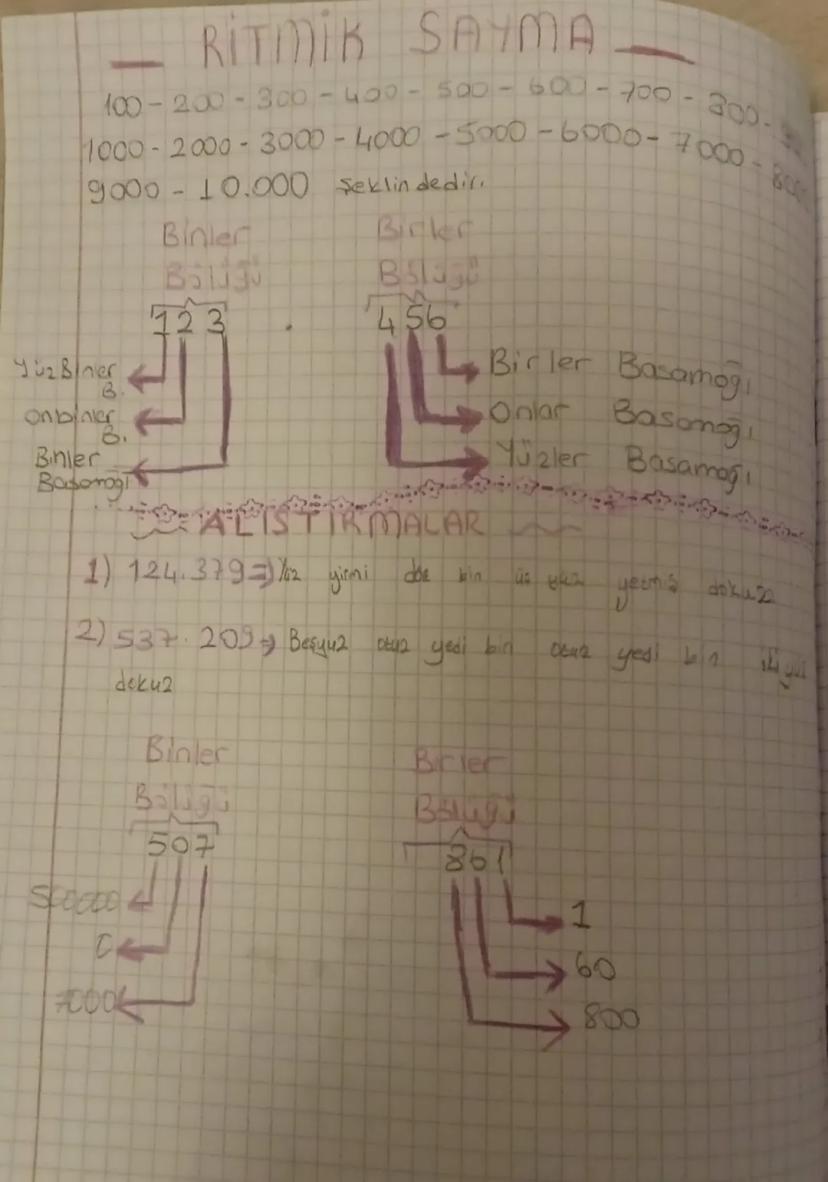 RİTMİK SAYMA
100 - 200 - 300 - 400 - 500 - 600 - 700 - 800 -
1000 - 2000 - 3000 - 4000 - 5000 - 6000 - 7000 - 8000
9000 - 10.000 şeklindedir.
Binler Birler
Bölüğü Bölüğü
123 . 456
Yüz Binler B. Birler Basamağı
Onbinler B. Onlar Basamağı
Binler Basamağı Yüzler Basamağı
ALIŞTIRMALAR
1) 124.379 => Yüz yirmi dört bin üç yüz yetmiş dokuz
2) 537.209 => Beşyüz otuz yedi bin otuz yedi bin iki yüz
dokuz
Binler Birler
Bölüğü Bölüğü
507 861
500000 1
0 60
7000 800